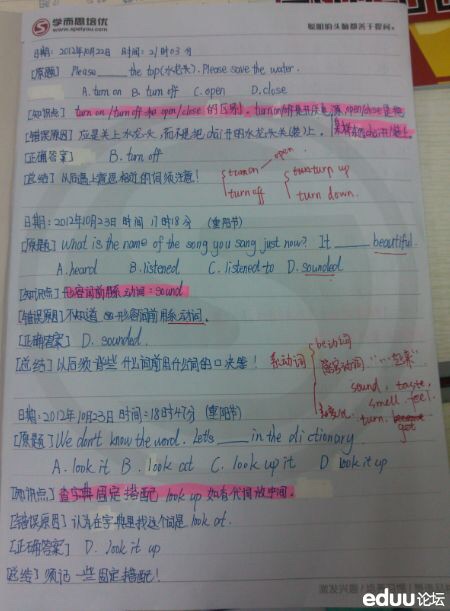 学而思培优
www.speiyou.com
聪明的头脑都善于提问。
日期：2012年10月22日 时间：21时03分
[原题] Please ____ the top(水龙头). Please save the water.
A. turn on B. turn off C. open D. close
[知识点] turn on/turn off 和 open/close 的区别。turn on/off是开关电源, open/close是把
[错误原因] 应是关上水龙头,而不是把 chāi 开的水龙头关(装)上。 某样东西chāi开/装上
[正确答案] B. turn off
[总结] 以后遇上意思相近的词须注意!
turn on
open
turn off
turn up
turn down.
日期：2012年10月23日 时间 17时18分 (重阳节)
[原题] What is the name of the song you sang just now? It ____ beautiful.
A. heard B. listened C. listened to D. sounded
[知识点] 形容词前用系动词：sound
[错误原因] 不知道 形容词前用系动词.
[正确答案] D. sounded.
[总结] 以后须背些什么词前用什么词的口决答!
系动词
be动词
感官动词 "…起来"
sound, taste,
smell, feel.
turn, got
日期：2012年10月23日 时间=18时47分 (重阳节)
[原题] We don't know the word. Let's ____ in the dictionary
A. look it B. look at C. look up it D look it up
[知识点] 查字典固定搭配 look up 如有代词放中间。
[错误原因] 认为在字典里找这个词是 look at.
[正确答案] D. look it up
[总结] 须记一些固定搭配!
eduu论坛